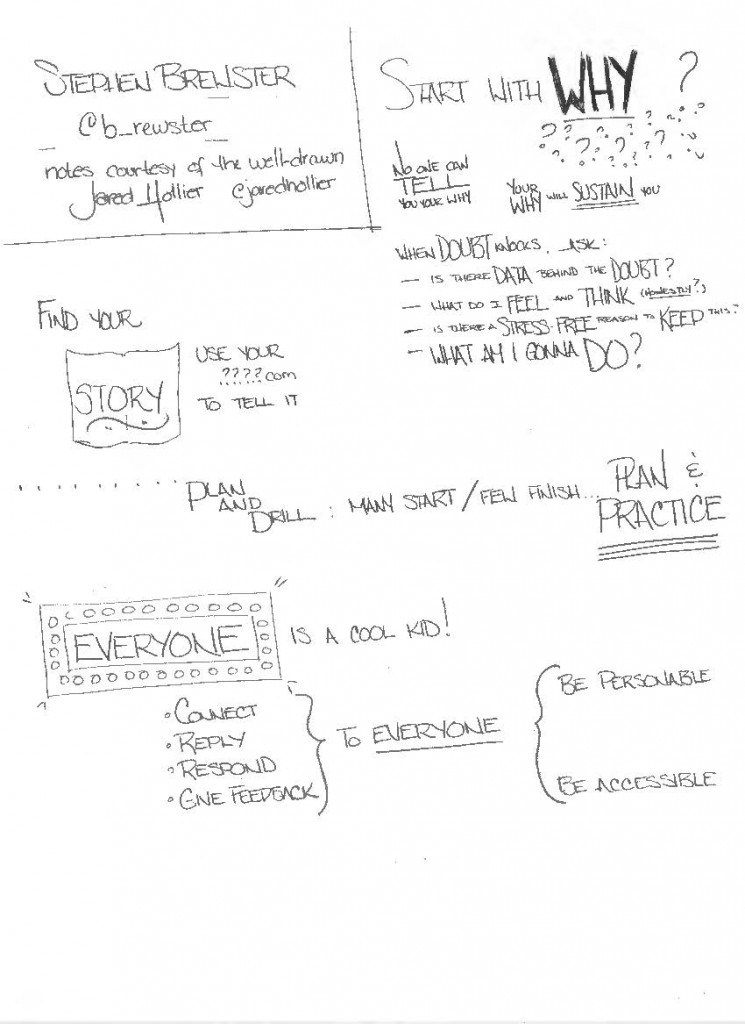 STEPHEN BREWSTER
@b_rewster
notes courtesy of the well-drawn
Jared Hollier @jaredhollier
START WITH WHY ?
NO ONE CAN
TELL
YOU YOUR WHY
YOUR
WHY WILL SUSTAIN YOU
WHEN DOUBT KNOCKS, ASK:
— IS THERE DATA BEHIND THE DOUBT?
— WHAT DO I FEEL AND THINK (HONESTLY?)
— IS THERE A STRESS-FREE REASON TO KEEP THIS?
— WHAT AM I GONNA DO?
FIND YOUR
STORY
USE YOUR
????.com
TO TELL IT
PLAN
AND
DRILL : MANY START / FEW FINISH...
PLAN &
PRACTICE
EVERYONE IS A COOL KID!
• CONNECT
• REPLY
• RESPOND
• GIVE FEEDBACK
TO EVERYONE
BE PERSONABLE
BE ACCESSIBLE